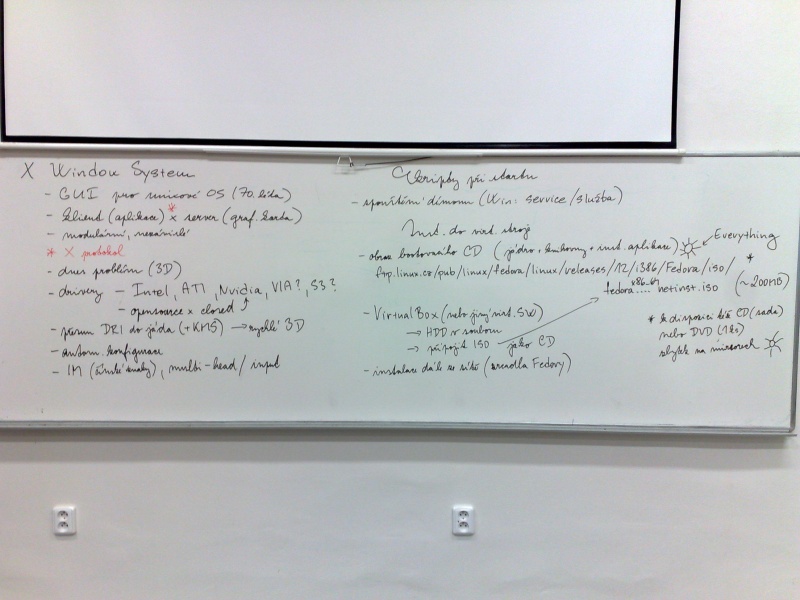 X Window System
- GUI pro unixové OS (70. léta)
- klient (aplikace) * x server (graf. karta)
- modulární, nezávislé
* X protokol
- dnes problém (3D)
- drivery - Intel, ATI, Nvidia, VIA?, S3?
- opensource x closed
- přesun DRI do jádra (+KMS) → rychlé 3D
- autom. konfigurace
- IM (čínské znaky), multi-head/input
Skripty při startu
- spouštění démonů (Win: service/služba)
Inst. do virt. stroje
- obraz bootovacího CD (jádro + knihovny + inst. aplikace)
Everything
ftp.linux.cz/pub/linux/fedora/linux/releases/12/i386/Fedora/iso/ *
x86_64
fedora....netinst.iso (~200MB)
- VirtualBox (nebo jiný virt. SW)
→ HDD v souboru
→ připojit ISO jako CD
- instalace dále ze sítě (zrcadla Fedory)
* k dispozici též CD (sada)
nebo DVD (1ks)
zbytek na mirrorech